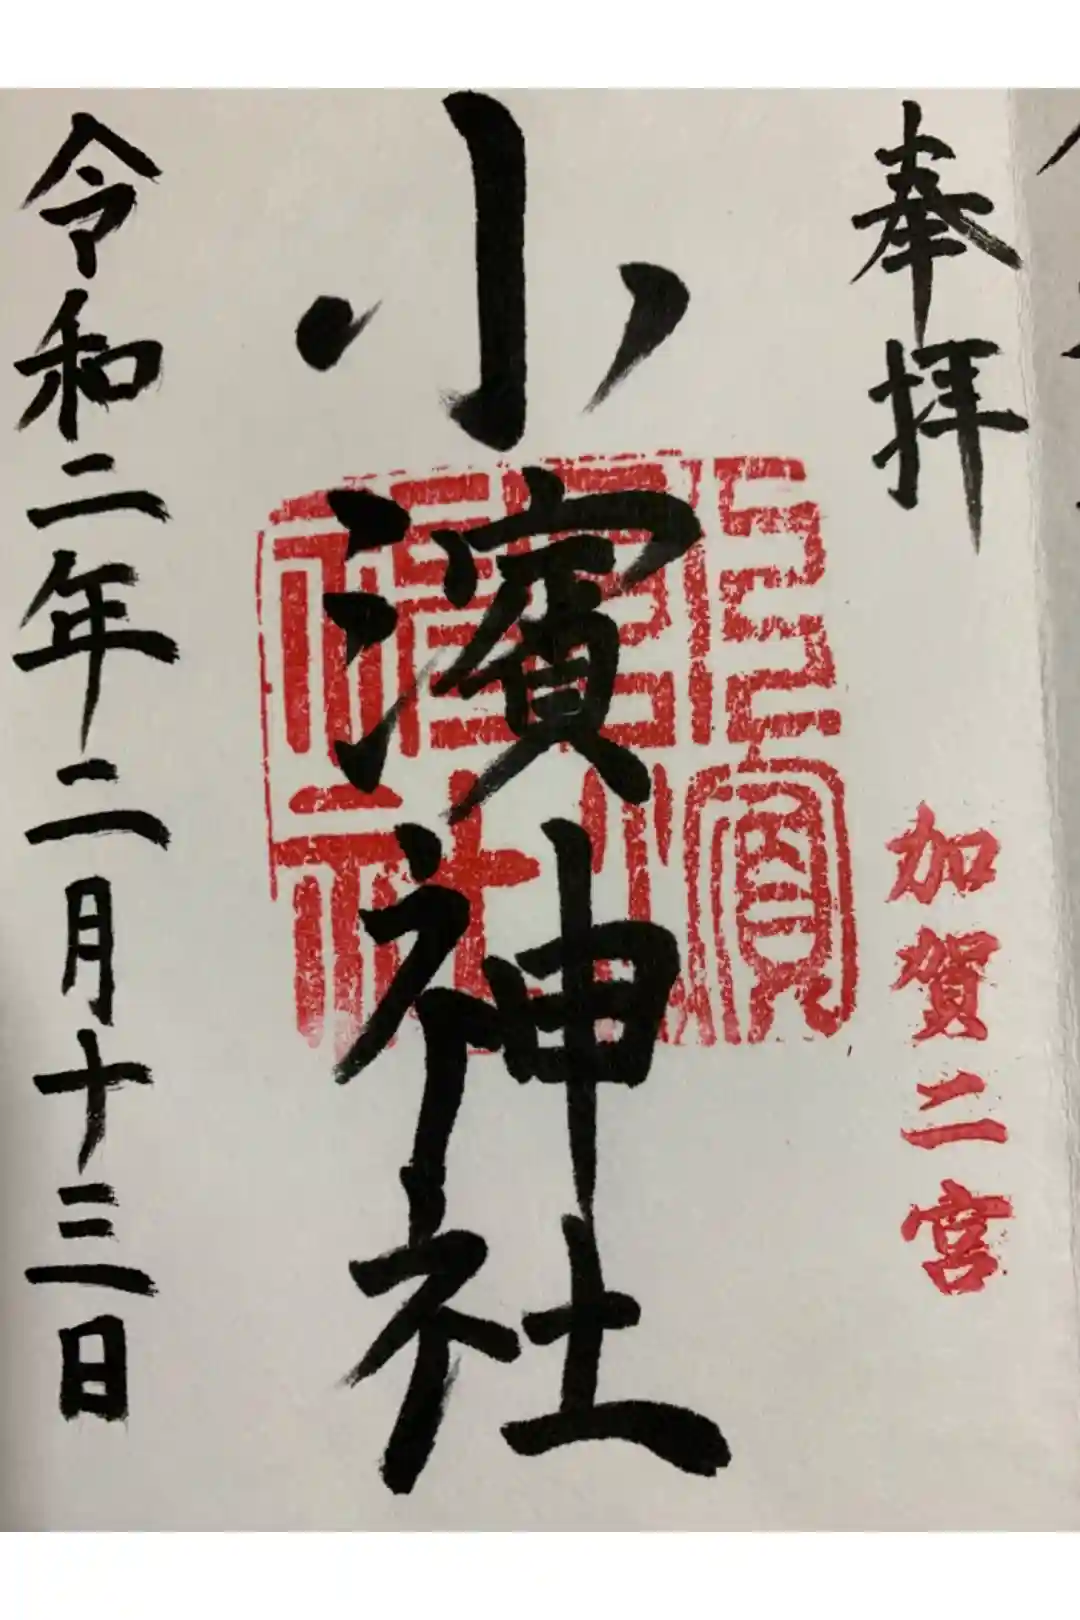 奉拝
加賀二宮
小濱神社
令和二年二月十三日